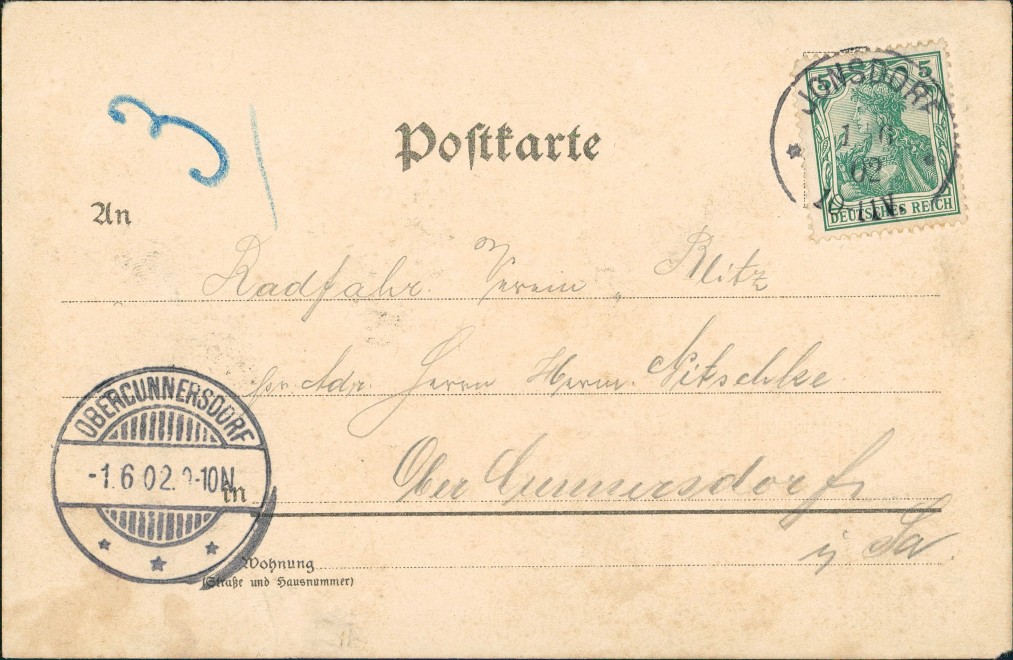 5 5
JONSDORF
1 6
02
DEUTSCHES REICH
3
Postkarte
An
Radfahr. Verein „ Blitz
pr. Adr. Herrn Herm. Nitschke
OBERCUNNERSDORF
-1.6.02. 9-10N.
in
Ober Cunnersdorf
i/ Sa.
Wohnung
(Straße und Hausnummer)